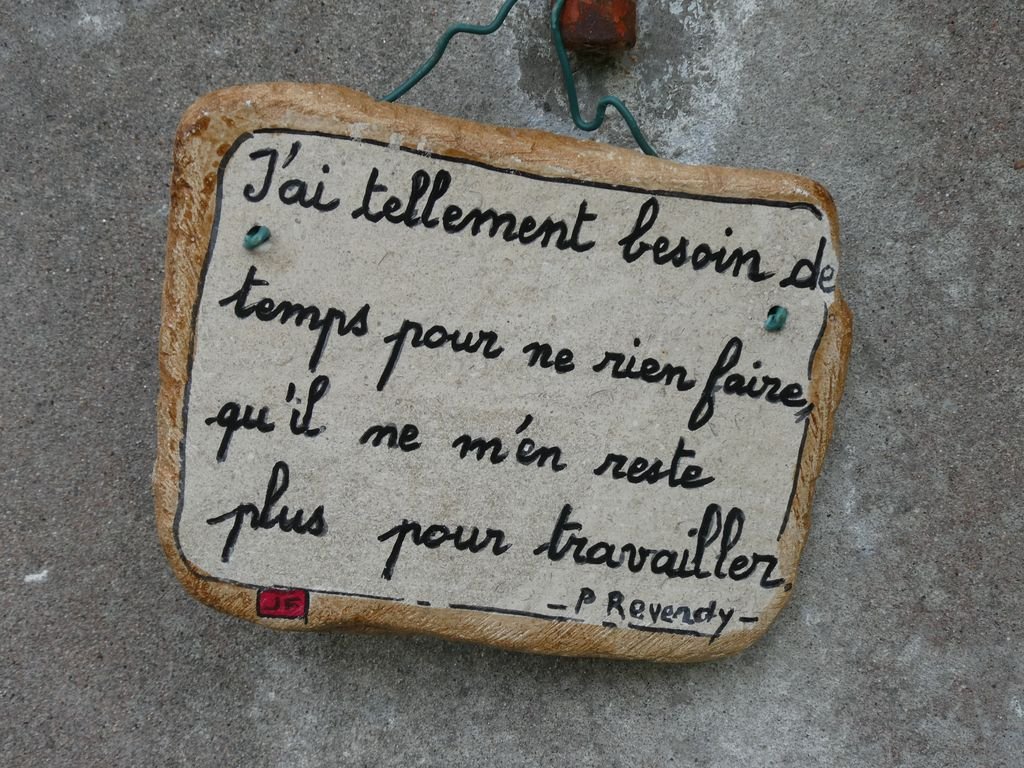 J'ai tellement besoin de
temps pour ne rien faire,
qu'il ne m'en reste
plus pour travailler.
- P Reverdy -
JF